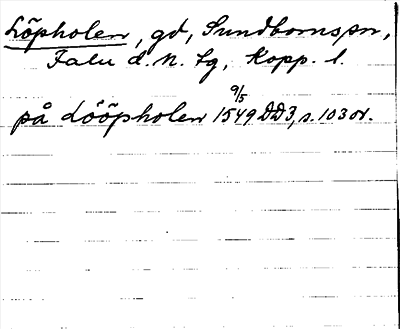 Löpholen, gd, Sundbornssn,
Falu d. N. tg, Kopp. l.
9/5
på Lööpholen 1549 DD3, s. 103 or.